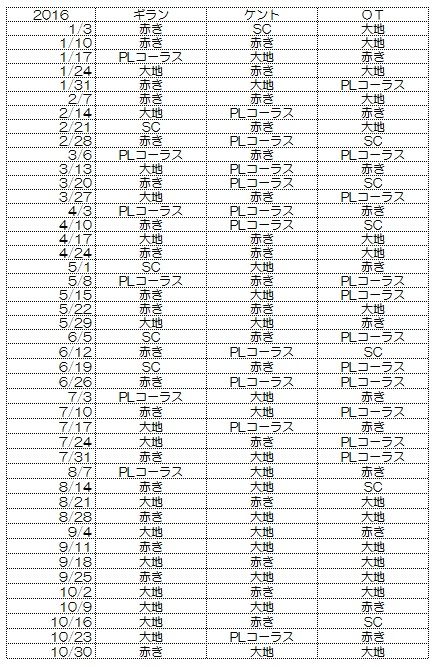 2016 ギラン ケント OT
1/3 赤き SC 大地
1/10 赤き 赤き 大地
1/17 PLコーラス 大地 赤き
1/24 大地 赤き 大地
1/31 赤き 大地 PLコーラス
2/7 赤き 赤き 大地
2/14 大地 PLコーラス 赤き
2/21 SC 赤き 大地
2/28 赤き PLコーラス SC
3/6 PLコーラス 赤き PLコーラス
3/13 大地 PLコーラス 赤き
3/20 赤き PLコーラス SC
3/27 大地 赤き PLコーラス
4/3 PLコーラス PLコーラス 赤き
4/10 赤き PLコーラス SC
4/17 大地 赤き 大地
4/24 赤き 赤き 大地
5/1 SC 大地 赤き
5/8 PLコーラス 赤き PLコーラス
5/15 赤き 大地 PLコーラス
5/22 赤き 赤き 大地
5/29 大地 大地 赤き
6/5 SC 赤き PLコーラス
6/12 赤き PLコーラス SC
6/19 SC 赤き PLコーラス
6/26 赤き PLコーラス PLコーラス
7/3 PLコーラス 大地 赤き
7/10 赤き 大地 PLコーラス
7/17 大地 PLコーラス 赤き
7/24 大地 赤き PLコーラス
7/31 赤き 大地 PLコーラス
8/7 PLコーラス 大地 赤き
8/14 赤き 大地 SC
8/21 大地 大地 赤き
8/28 赤き 赤き 大地
9/4 大地 大地 赤き
9/11 赤き 大地 大地
9/18 大地 赤き 大地
9/25 赤き 大地 大地
10/2 大地 赤き 大地
10/9 大地 大地 赤き
10/16 大地 赤き SC
10/23 大地 PLコーラス 赤き
10/30 赤き 大地 大地